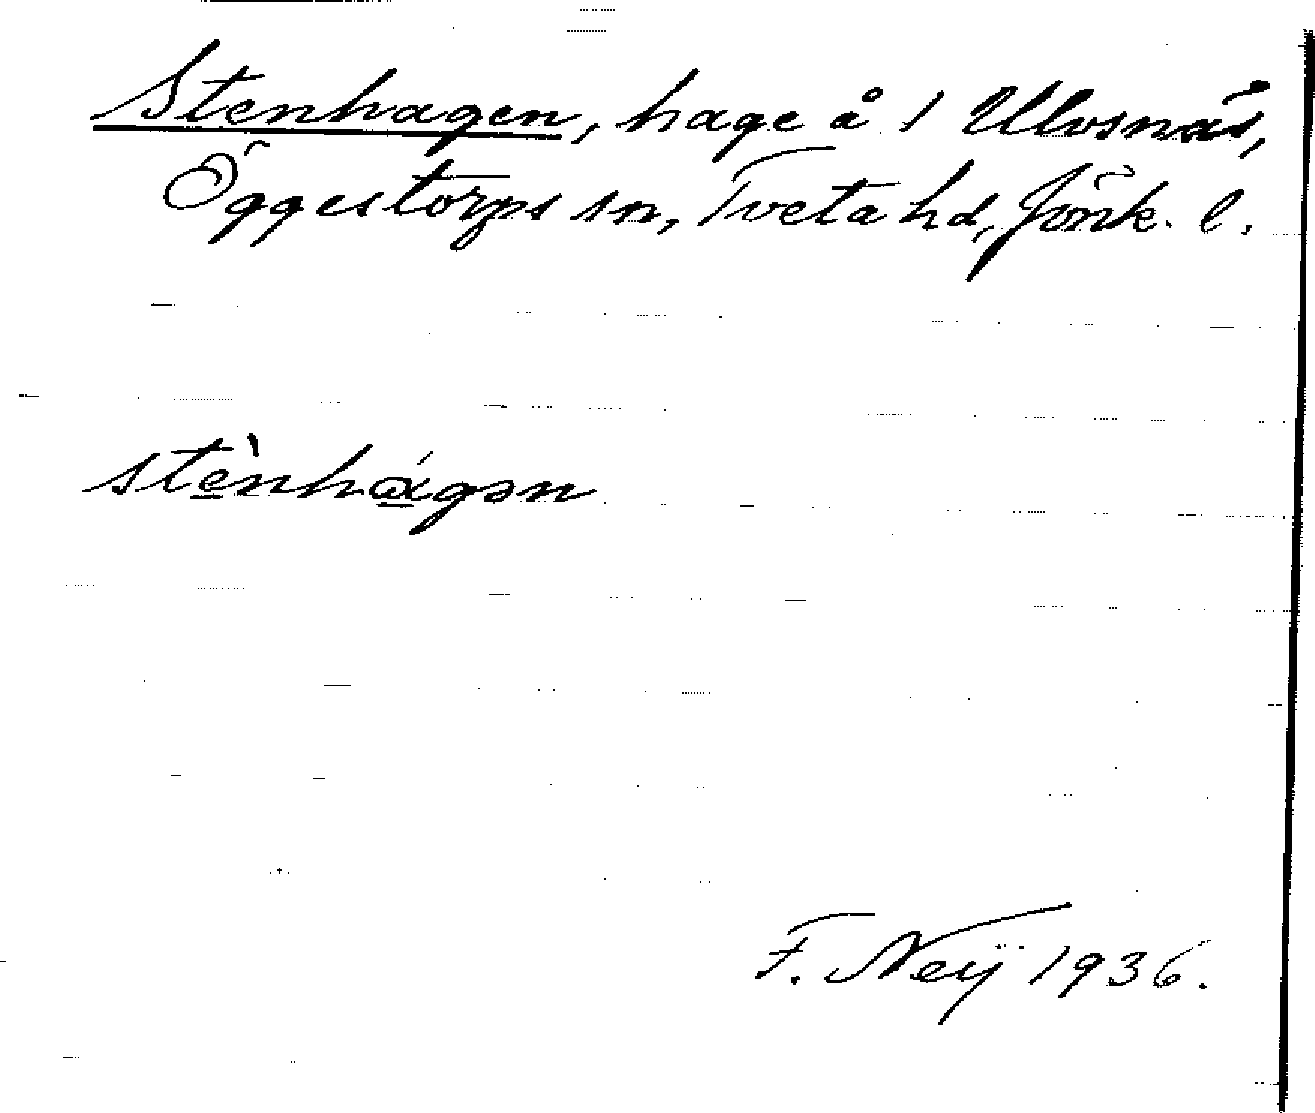 Stenhagen, hage å 1 Ulvsnäs,
Öggestorps sn, Tveta hd, Jönk. l.
stè̠nhɑ̠́gən
F. Neij 1936.